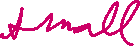 A Small